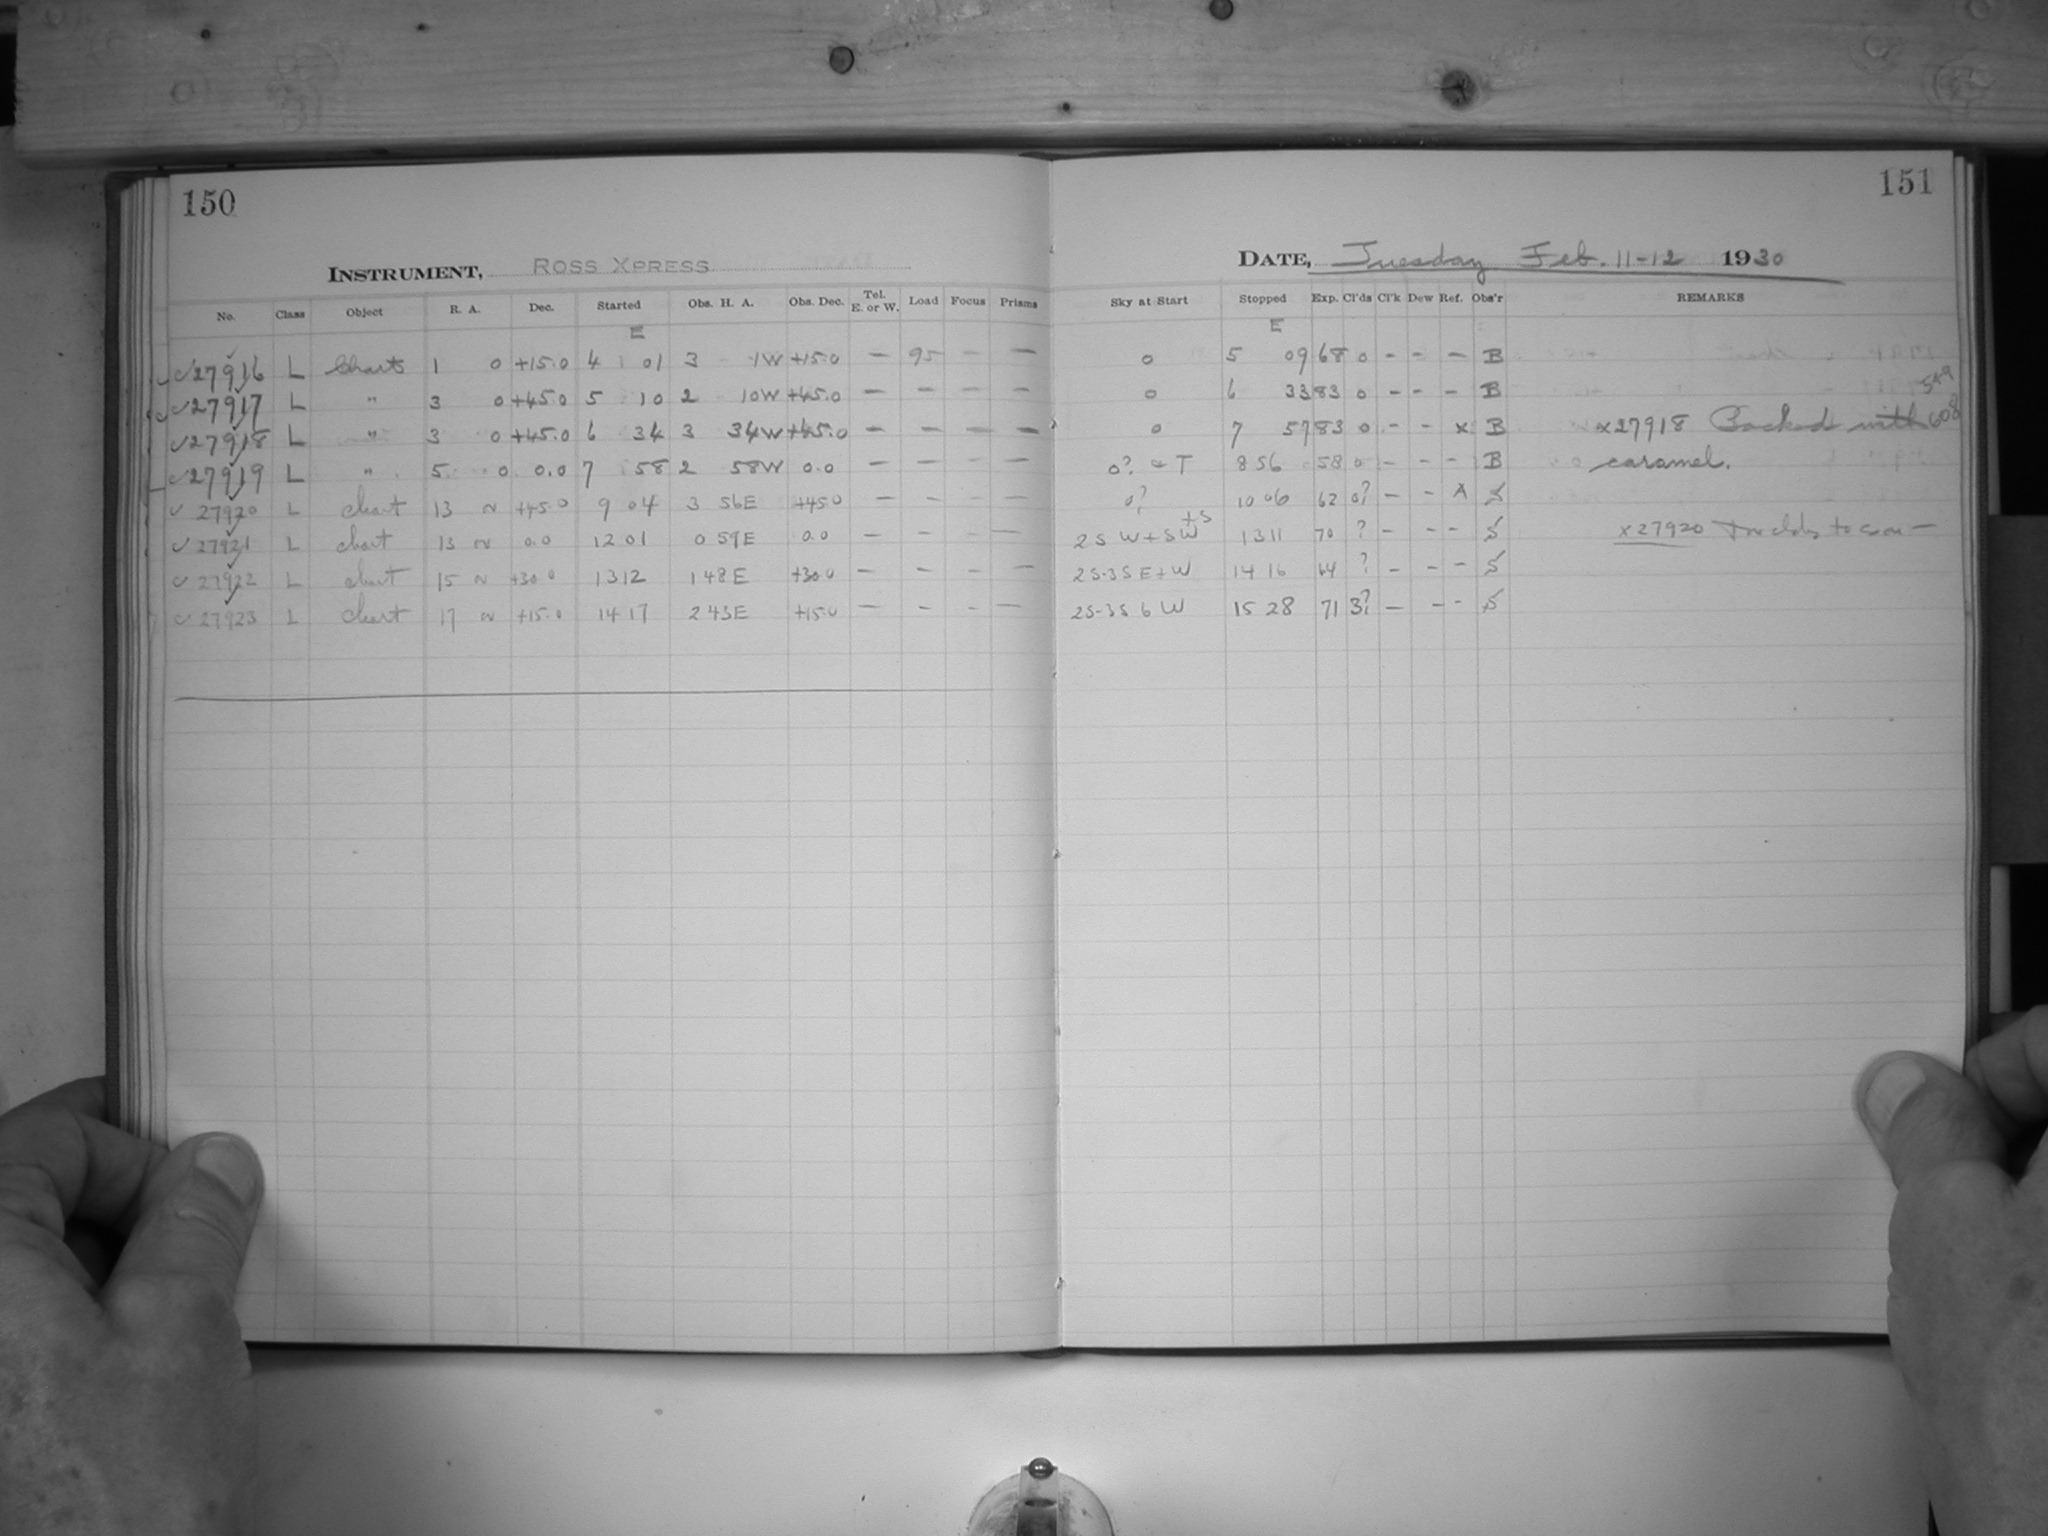 150
INSTRUMENT, ROSS XPRESS
No. Class Object R. A. Dec. Started Obs. H. A. Obs. Dec. Tel. E. or W. Load Focus Prisms
E
27916 L Charts 1 0 +15.0 4 01 3 1W +15.0 — 95 — —
27917 L " 3 0 +45.0 5 10 2 10W +45.0 — — — —
27918 L " 3 0 +45.0 6 34 3 34W +45.0 — — — —
27919 L " 5 0 0.0 7 58 2 58W 0.0 — — — —
27920 L chart 13 ~ +45.0 9 04 3 56E +45.0 — — - —
27921 L chart 13 ~ 0.0 12 01 0 59E 0.0 — — - —
27922 L chart 15 ~ +30.0 13 12 1 48E +30.0 — — - —
27923 L chart 17 ~ +15.0 14 17 2 43E +15.0 — - - —
151
DATE, Tuesday Feb. 11-12 1930
Sky at Start Stopped Exp. Cl'ds Cl'k Dew Ref. Obs'r REMARKS
E
0 5 09 68 0 - - - B
0 6 33 83 0 - - - B 549
0 7 57 83 0 - - x B x27918 Backed with 608
0? T 8 56 58 0 - - - B caramel.
0? 10 06 62 0? - - x S
+S
2S W + SW 13 11 70 ? - - - S x27920 to
2S-3S E+W 14 16 64 ? - - - S
2S-3S 6 W 15 28 71 3? - - - S